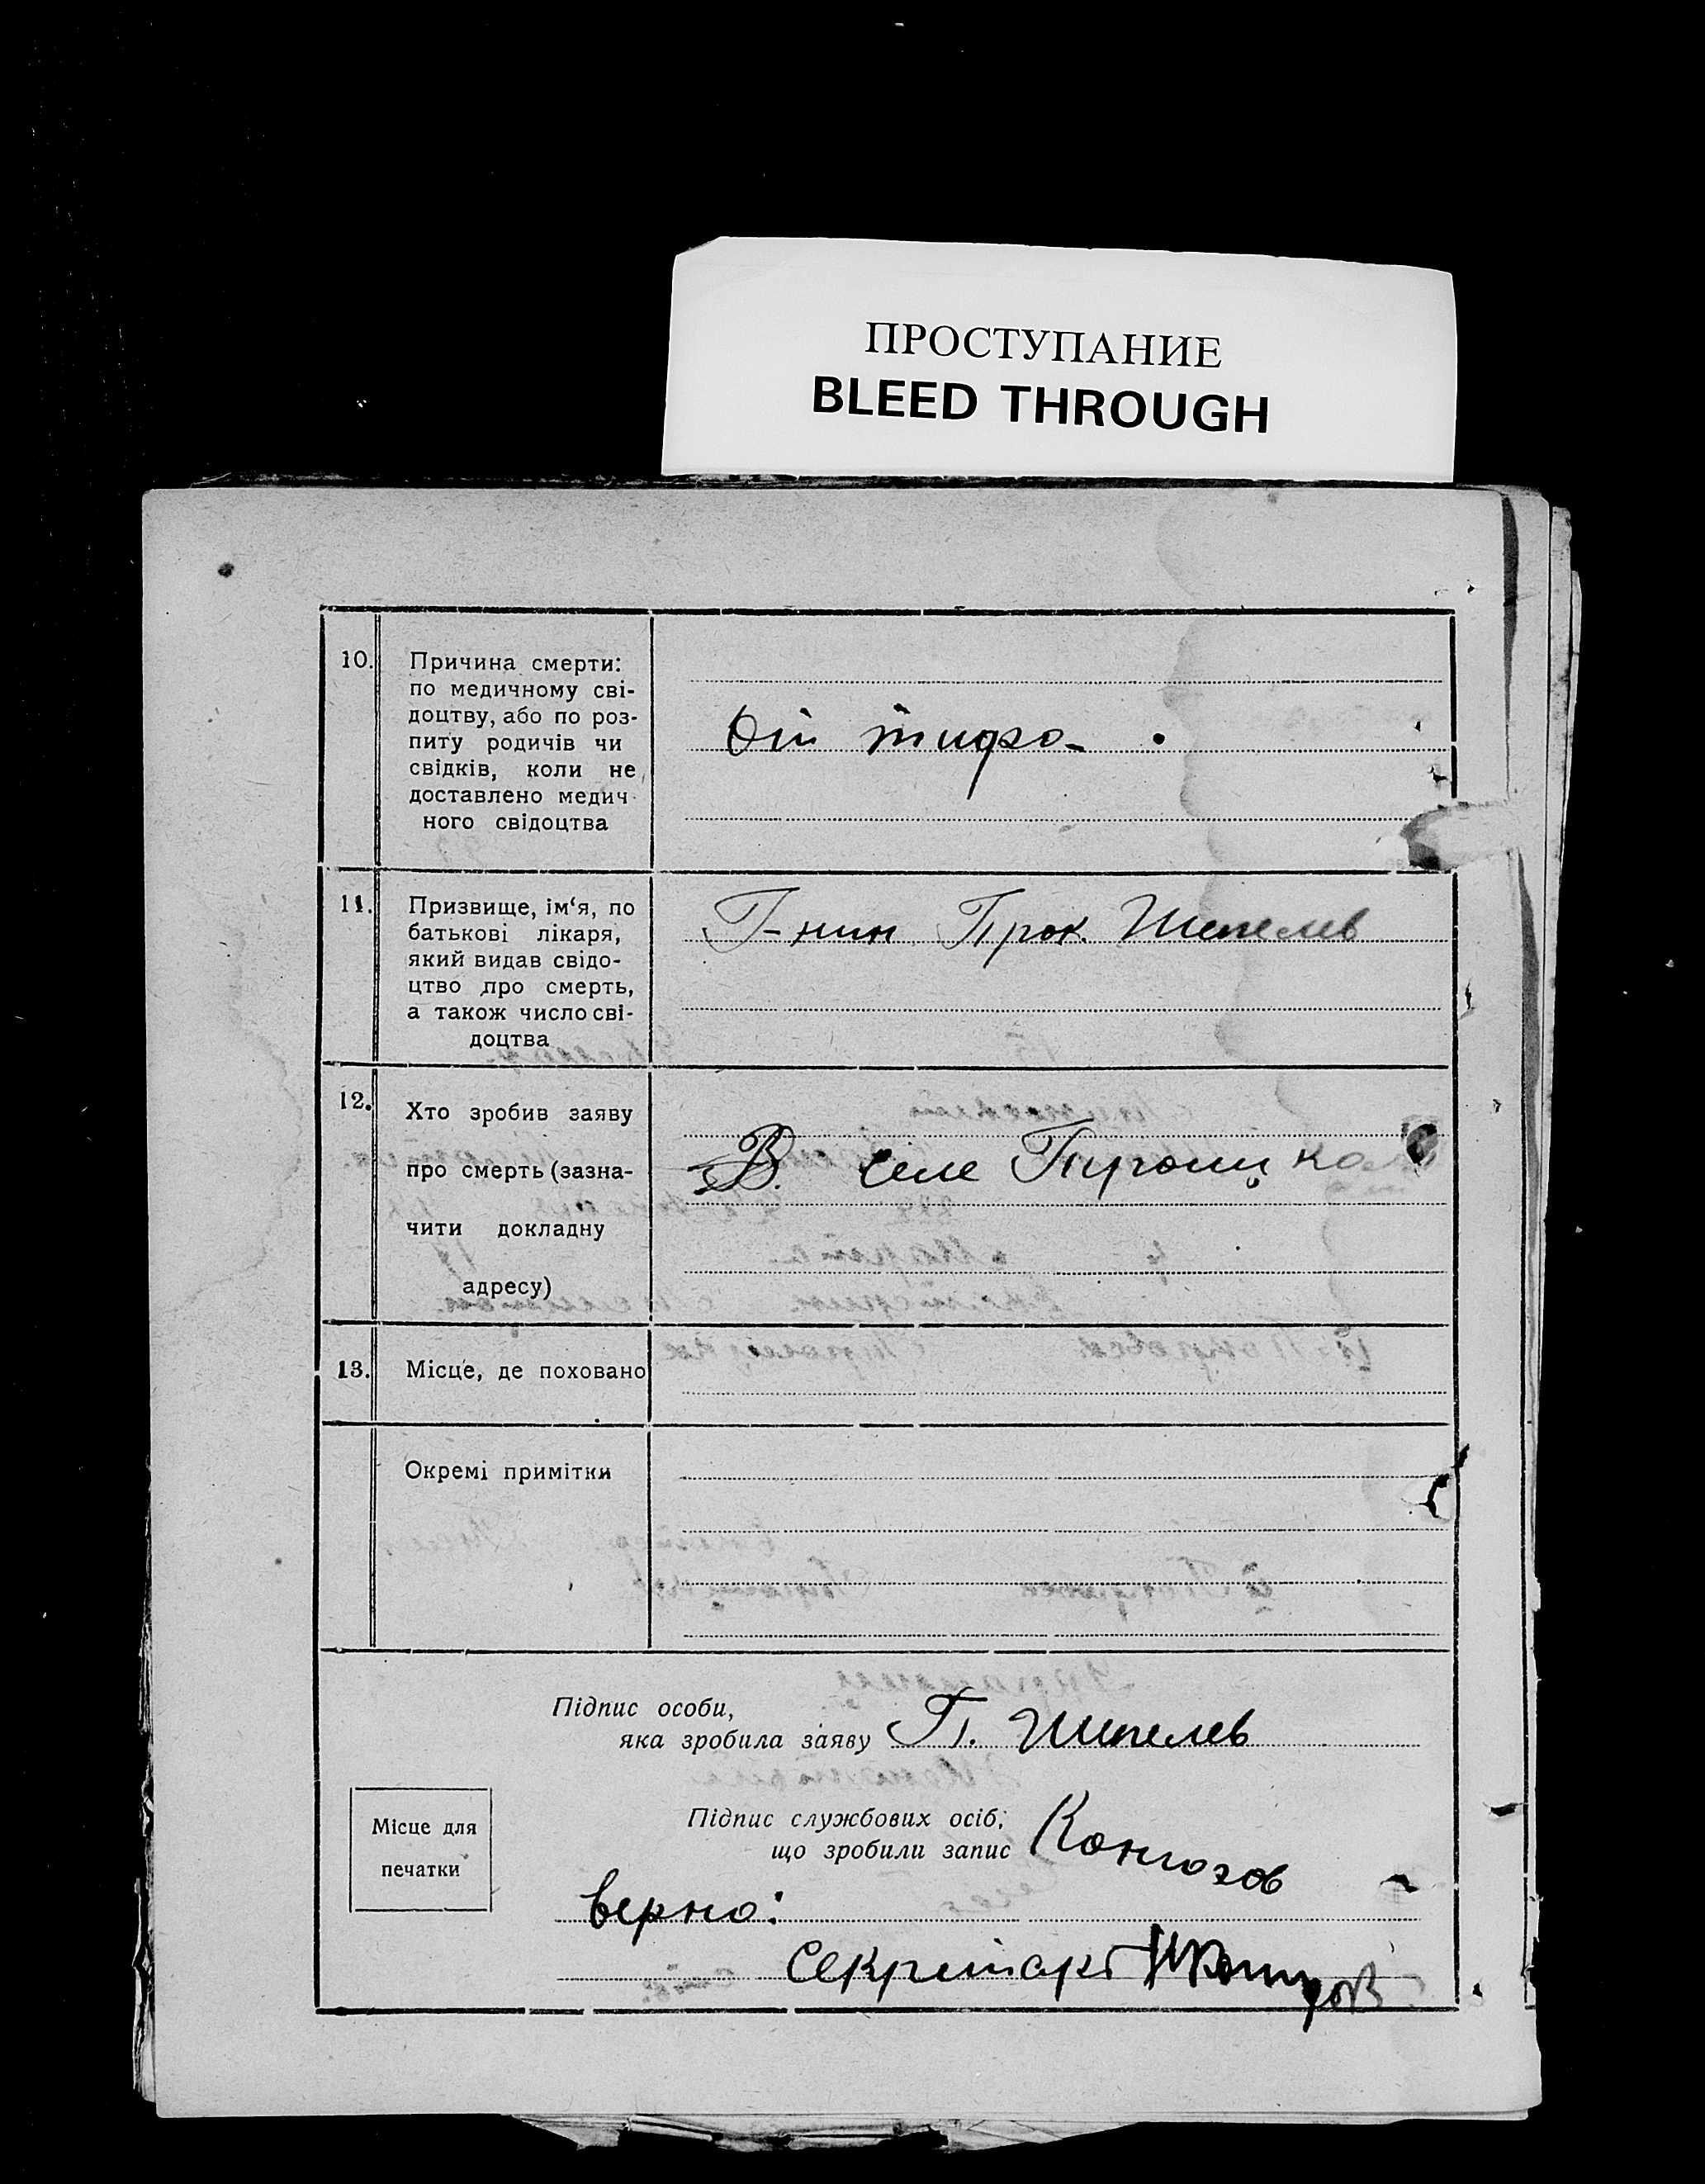 ПРОСТУПАНИЕ
BLEED THROUGH
10.
Причина смерти:
по медичному сві-
доцтву, або по роз-
питу родичів чи
свідків, коли не
доставлено медич-
ного свідоцтва
Від тифо
11.
Призвище, ім'я, по
батькові лікаря,
який видав свідо-
цтво про смерть,
а також число сві-
доцтва
Г-нин Прок. Шепелев
12.
Хто зробив заяву
про смерть (зазна-
чити докладну
адресу)
В. селе
13.
Місце, де поховано
Окремі примітки
Підпис особи,
яка зробила заяву П. Шепелев
Підпис службових осіб,
що зробили запис
Місце для
печатки
Верно:
Секретарь